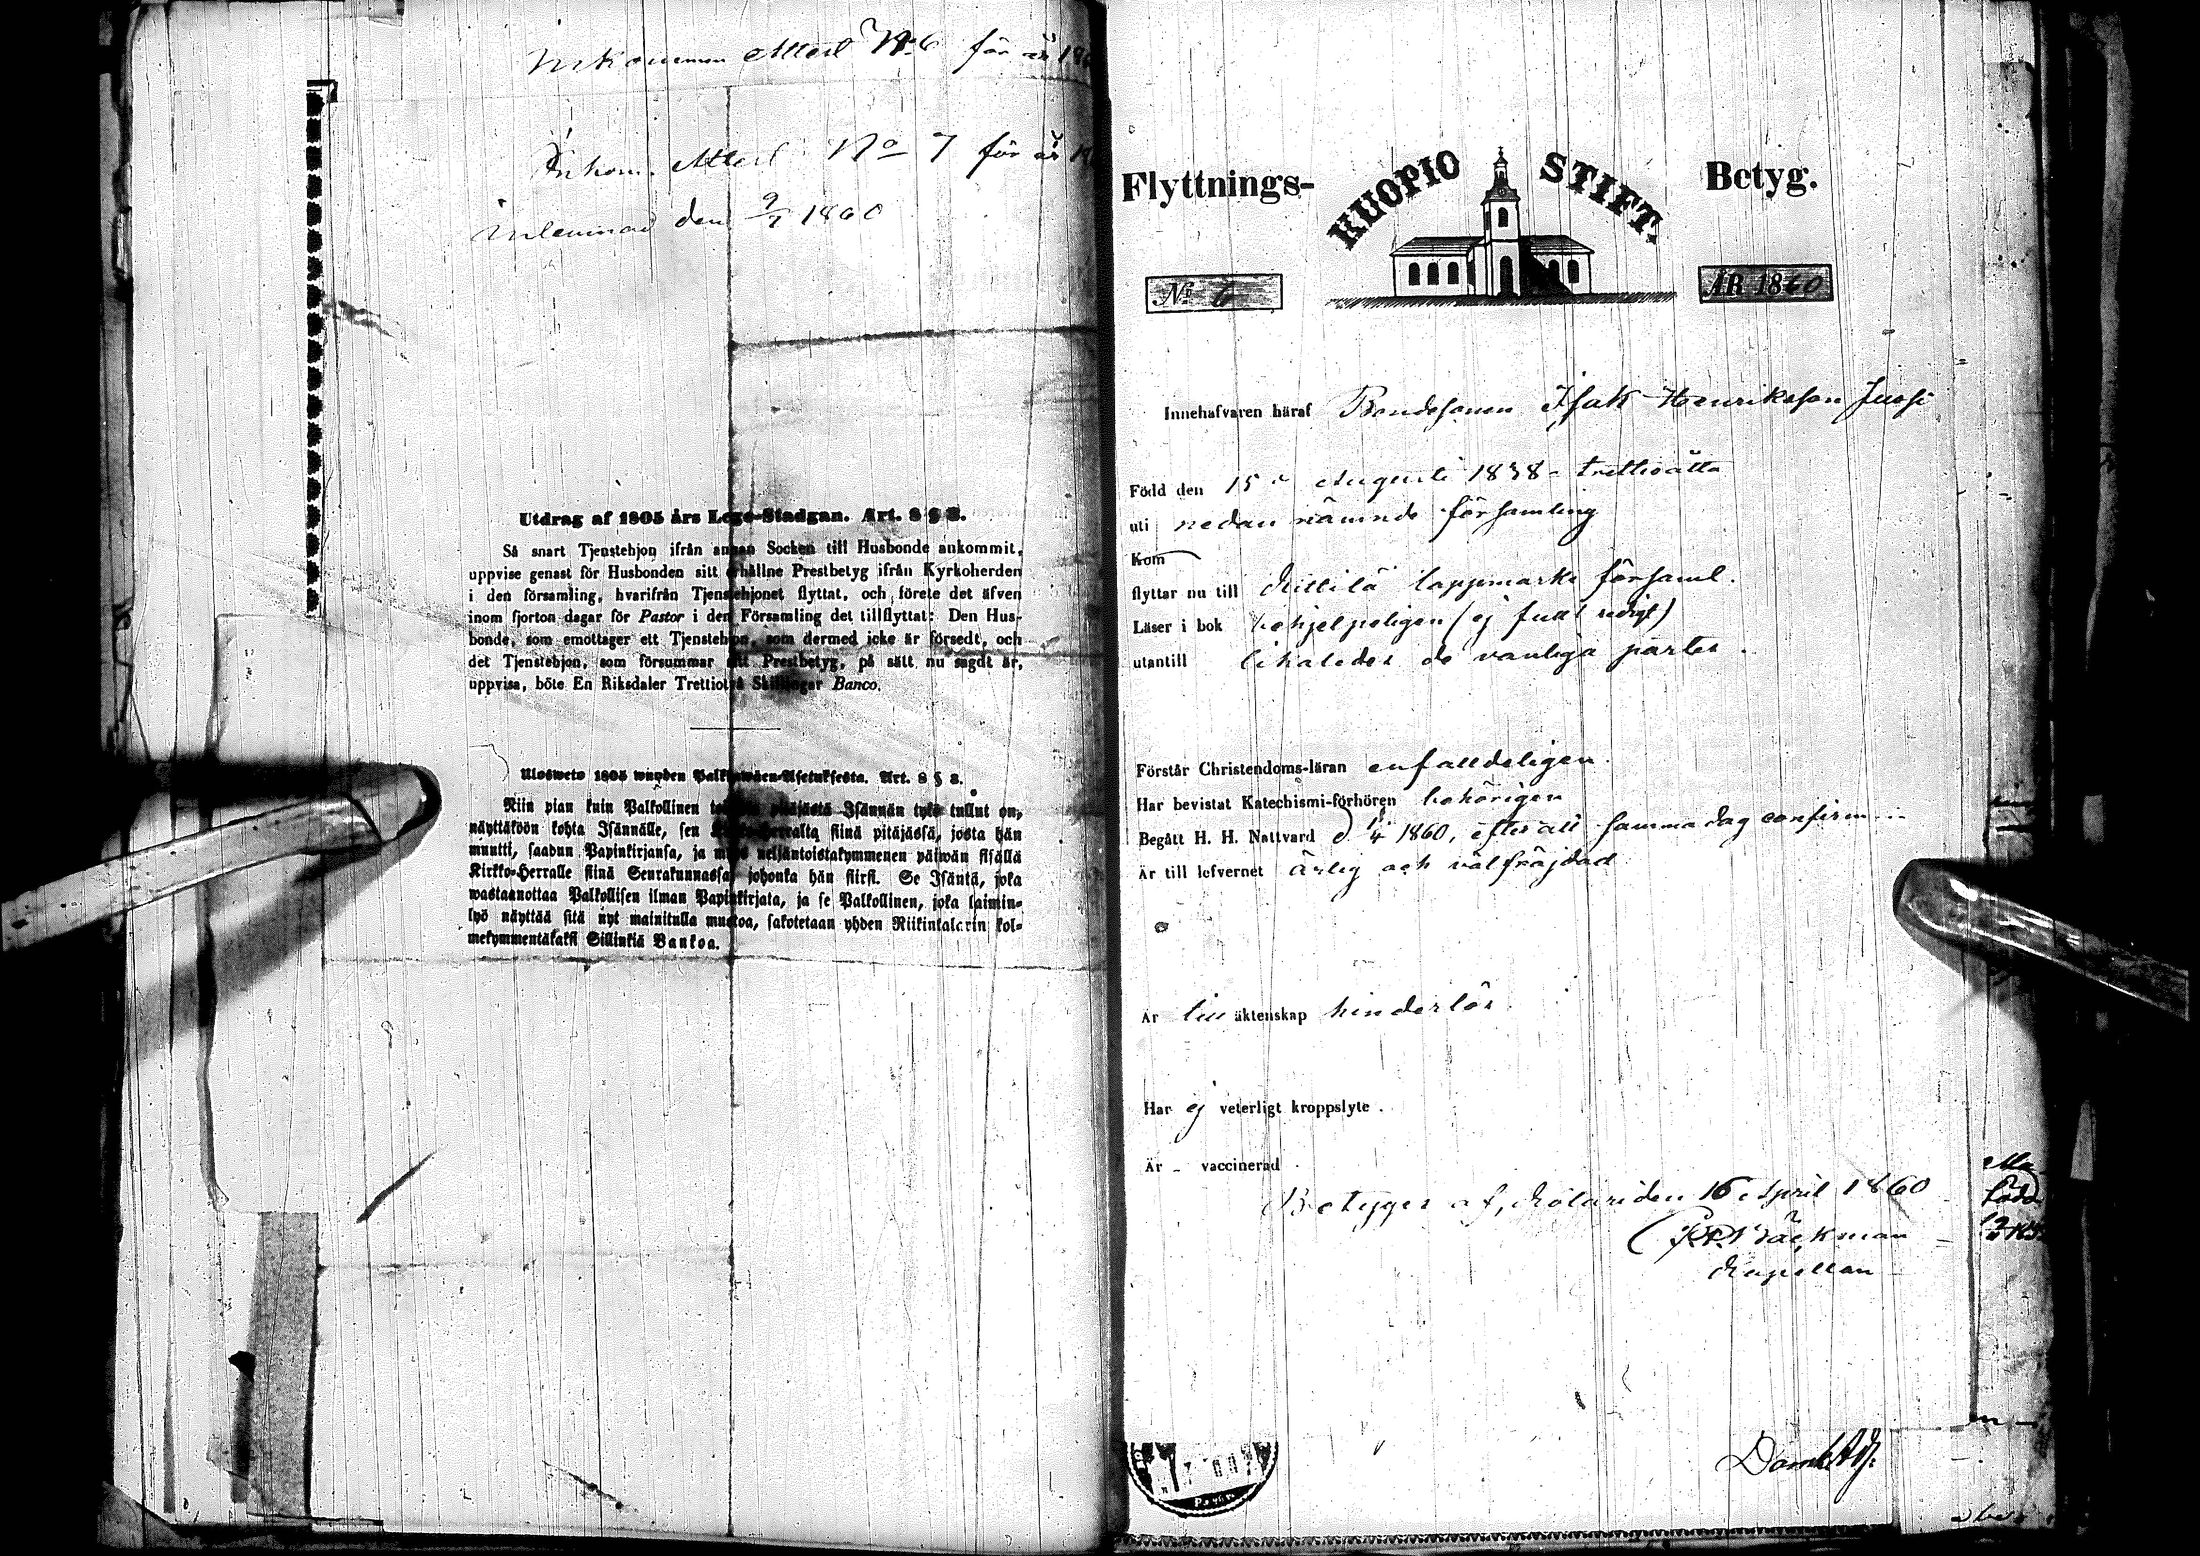 Inkommen Attest No 6 för år 186
Inkom. Attest No 7 för år 18
inlemnad den 9/7 1860
Utdrag af 1805 års Lego-Stadgan. Art. 8 § 8.
Så snart Tjenstehjon ifrån annan Socken till Husbonde ankommit,
uppvise genast för Husbonden sitt erhållne Prestbetyg ifrån Kyrkoherden
i den församling, hvarifrån Tjenstehjonet flyttat, och förete det äfven
inom fjorton dagar för Pastor i den Församling det tillflyttat: Den Hus-
bonde, som emottager ett Tjenstehjon, som dermed icke är försedt, och
det Tjenstehjon, som försummar sitt Prestbetyg, på sätt nu sagdt är,
uppvisa, böte En Riksdaler Trettiotvå Skillingar Banco.
Ulosweto 1805 wuoden Palkkawäen-Asetuksesta. Art. 8 § 8.
Niin pian kuin Palkollinen toisesta pitäjästä Isännän tykö tullut on,
näyttäköön kohta Isännälle, sen Kirkko-Herralta siinä pitäjässä, josta hän
muutti, saadun Papinkirjansa, ja myös neljäntoistakymmenen päiwän sisällä
Kirkko-Herralle siinä Seurakunnassa, johonka hän siirsi. Se Isäntä, joka
wastaanottaa Palkollisen ilman Papinkirjata, ja se Palkollinen, joka laimin-
lyö näyttää sitä nyt mainitulla muotoa, sakotetaan yhden Riikintalarin kol-
mekymmentäkaksi Sillinkiä Bankoa.
Flyttnings- KUOPIO STIFT. Betyg.
No 6 ÅR 1860
Innehafvaren häraf Bondesonen Isak Henriksson Jussi
Född den 15 Augusti 1838 - trettioåtta
uti nedannämnde församling
Kom
flyttar nu till Kittilä lappmarks församl.
Läser i bok behjelpeligen (ej fullt redigt)
utantill likaledes de vanliga parter.
Förstår Christendoms-läran enfalldeligen.
Har bevistat Katechismi-förhören behörigen
Begått H. H. Nattvard d 1/4 1860, efter att samma dag confirm...
Är till lefvernet ärlig och välfräjdad
Är till äktenskap hinderlös
Har ej veterligt kroppslyte.
Är - vaccinerad
Betygas af, Kolari den 16 April 1860
Bäckman
Kapellan